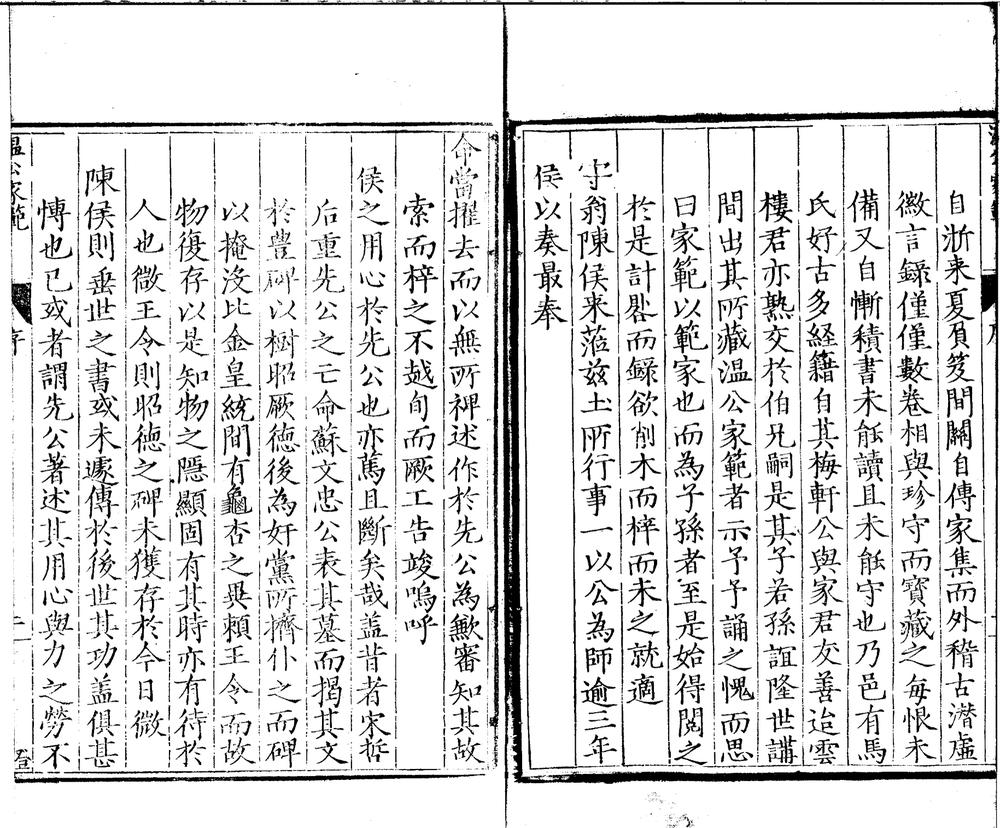 自浙來夏負笈間關自傳家集而外稽古潛虛
微言錄僅僅數卷相與珍守而寶藏之每恨未
備又自慚積書未能讀且未能守也乃邑有馬
氏好古多經籍自其梅軒公與家君友善迨雲
樓君亦熟交於伯兄嗣是其子若孫誼隆世講
間出其所藏溫公家範者示予予誦之愧而思
曰家範以範家也而為子孫者至是始得閱之
於是計畧而鏍欲削木而梓而未之就適
守翁陳侯來蒞茲土所行事一以公為師逾三年
侯以奏最奉
命當擢去而以無所裨述作於先公為歉審知其故
索而梓之不越旬而厥工告竣嗚呼
侯之用心於先公也亦篤且斷矣哉盖昔者宋哲
后重先公之亡命蘇文忠公表其墓而揭其文
於豊碑以樹昭厥德後為奸黨所擠仆之而碑
以掩沒比金皇統間有龜杏之異賴王令而故
物復存以是知物之隱顯固有其時亦有待於
人也微王令則昭德之碑未獲存於今日微
陳侯則垂世之書或未遽傳於後世其功盖俱甚
慱也已或者謂先公著述其用心與力之勞不
溫公家範
序
二